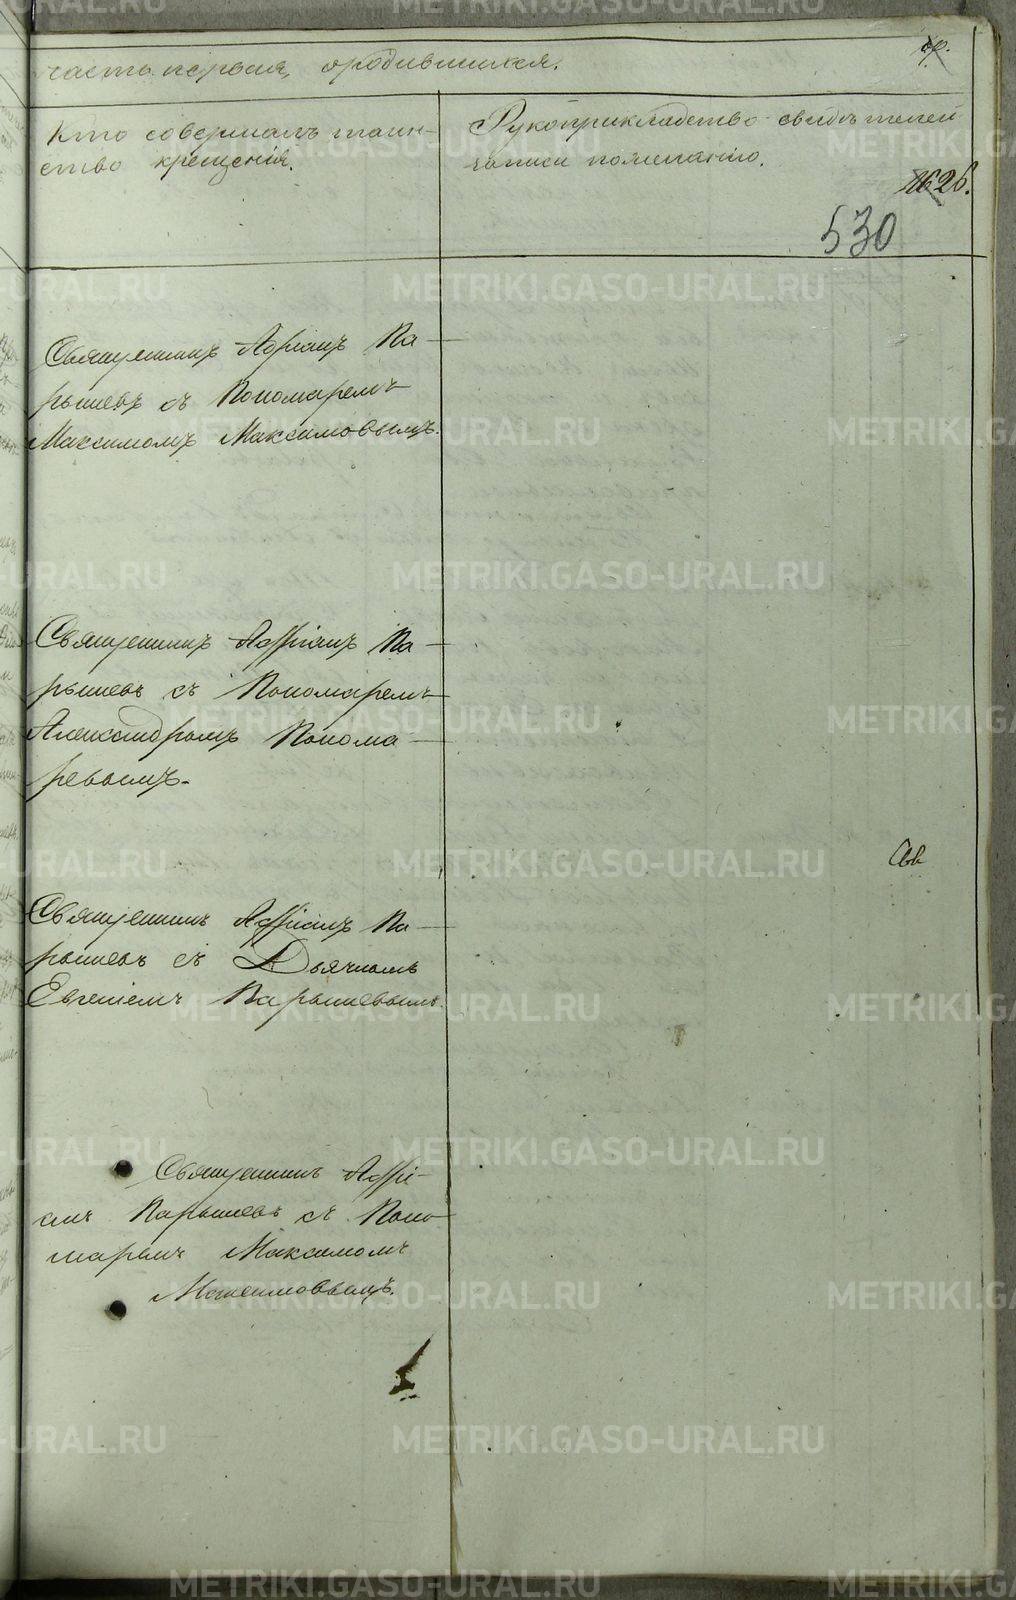 часть первая, о родившихся.
Кто совершалъ таин-
ство крещенія.
Рукоприкладство свидѣтелей
записи по желанію.
1626.
530
Священникъ Адріанъ Па-
рышевъ съ Пономаремъ
Максимомъ Максимовымъ.
Священникъ Адріанъ Па-
рышевъ съ Пономаремъ
Александромъ Понома-
ревымъ.
Священникъ Адріанъ Па-
рышевъ съ Дьячкомъ
Евгеніемъ Парышевымъ
Священникъ Адрі-
анъ Парышевъ съ Поно-
маремъ Максимомъ
Максимовымъ.
METRIKI.GASO-URAL.RU